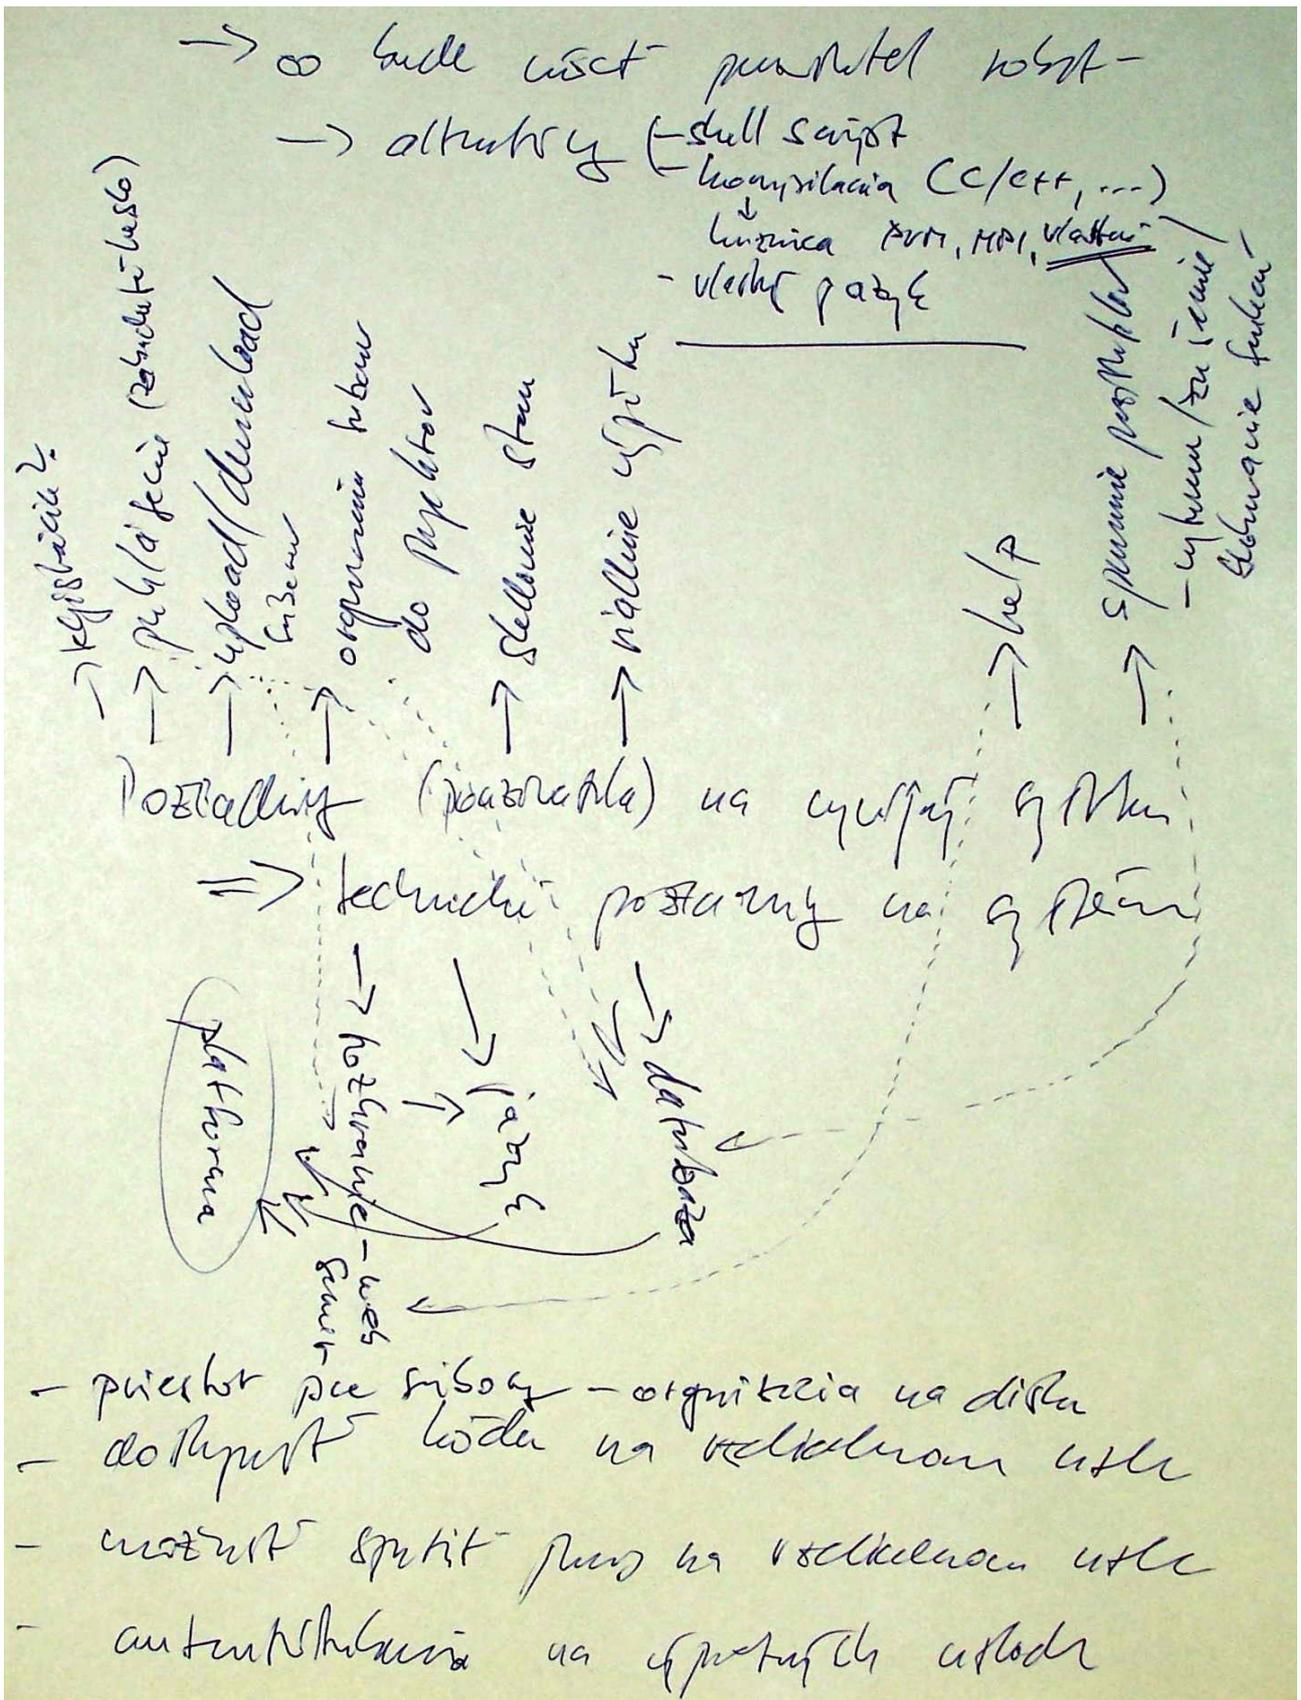 → čo bude môcť používateľ robiť
→ alternatívy (- shell script
- kompilácia (CC/C++, ...)
↓
knižnica PVM, MPI, vlastná
- vlastný jazyk
→ registrácia?
→ prihlásenie (zabudnuté heslo)
→ upload/download
súborov
→ organizácia súborov
do projektov
→ sledovanie stavu
→ riadenie výpočtu
→ help
→ spustenie
- vytvorenie/zrušenie/
Požiadavky (používateľa) na vyvíjaný systém
⇒ technické požiadavky na systém
→ rozhranie - web
server
→ jazyk
→ databáza
platforma
- priestor pre súbory - organizácia na disku
- dostupnosť kódu na vzdialenom uzle
- možnosť spustiť proces na vzdialenom uzle
- na výpočtových uzloch